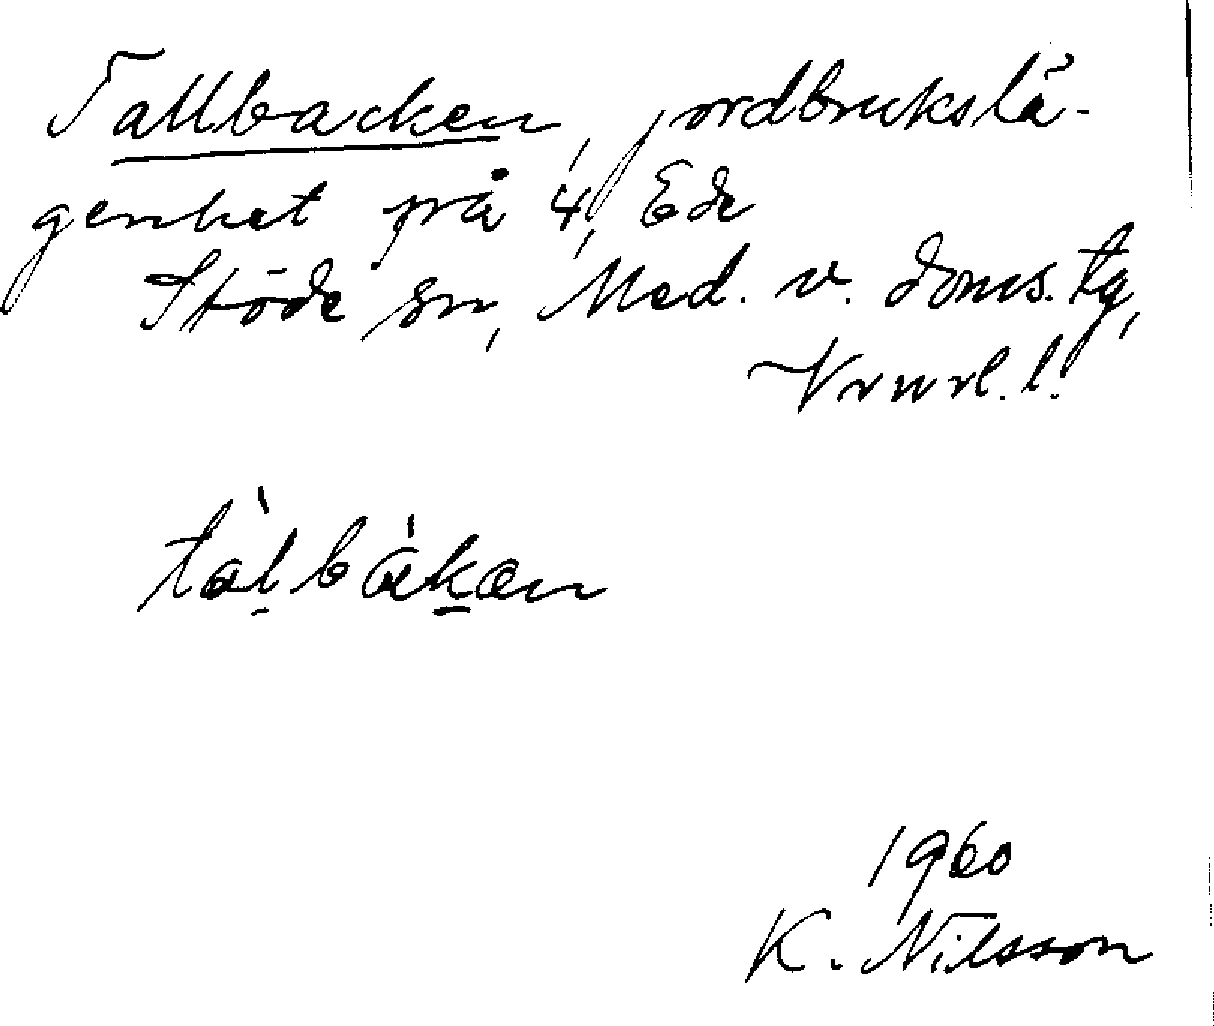 Tallbacken, jordbrukslä-
genhet på 4, Ede
Stöde sn, Med. v. doms. tg,
Vrnrl. l.
tàl̠bàk̠ən
1960
K. Nilsson